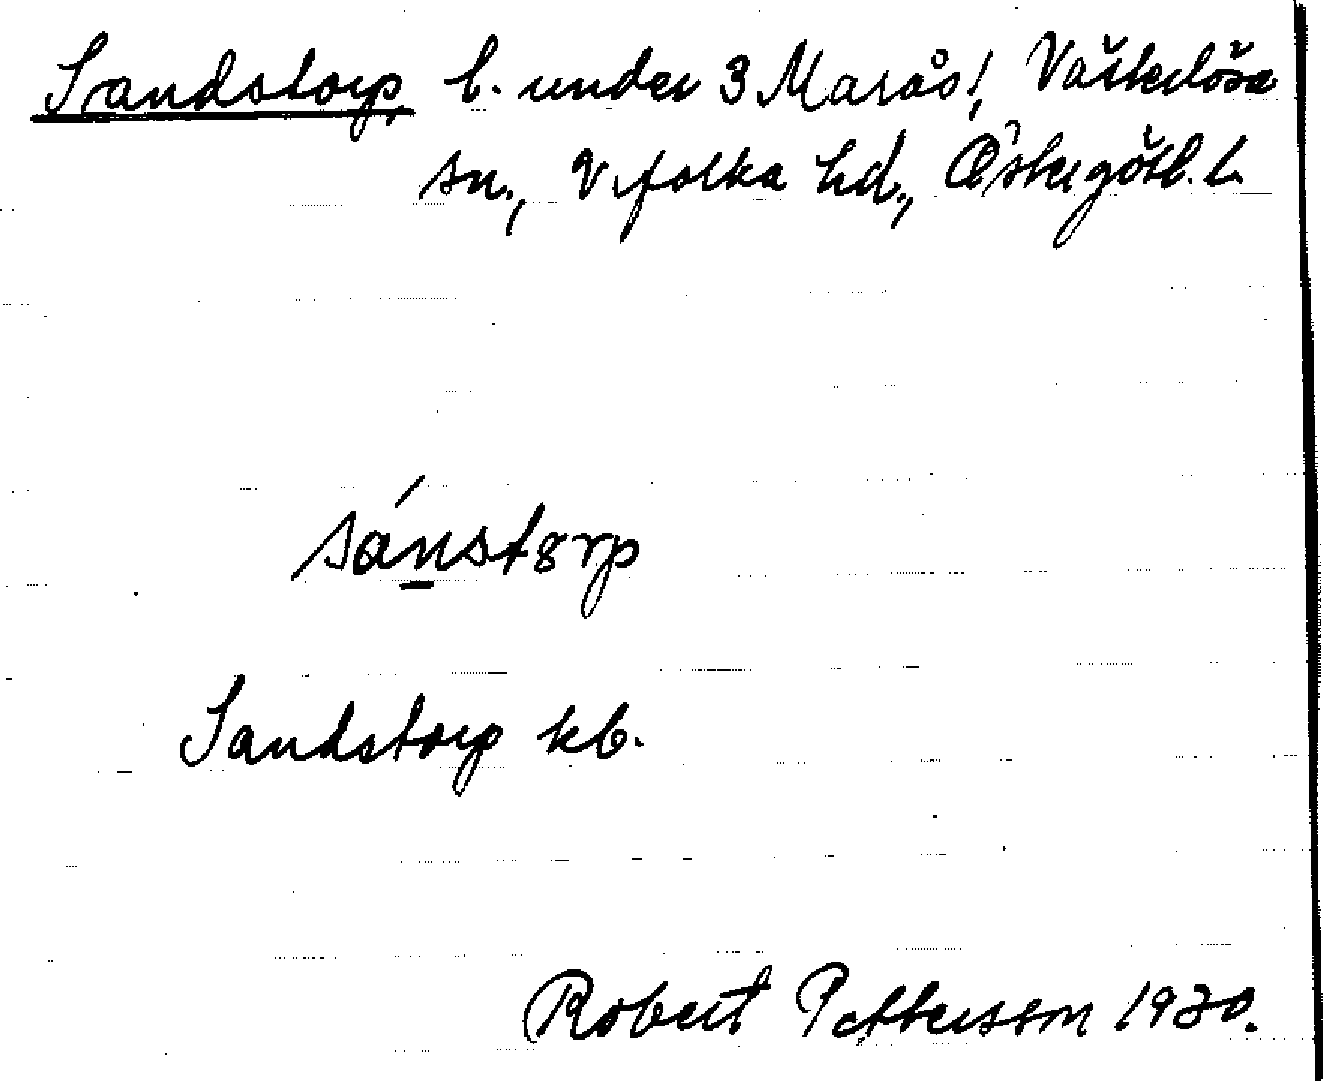 Sandstorp, l. under 3 Marås!, Väderlösa
sn., Vifolka hd., Östergötl. l.
sánstɔrp
Sandstorp kb.
Robert Pettersson 1930.